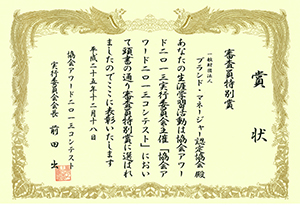 賞状
審査員特別賞
一般財団法人
ブランド・マネージャー認定協会 殿
あなたの生涯学習活動は協会アワー
ド二〇一三実行委員会主催「協会ア
ワード二〇一三コンテスト」におい
て頭書の通り審査員特別賞に選ばれ
ましたのでここに表彰いたします
平成二十五年十二月十八日
協会アワード二〇一三コンテスト
実行委員会会長 前田 出